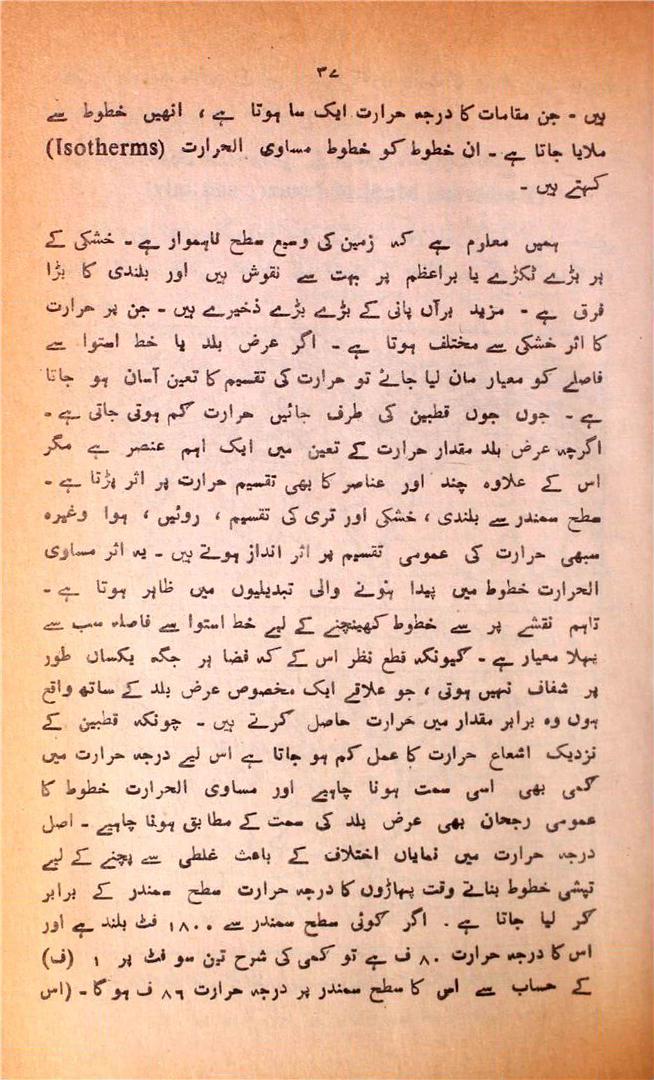 ۳۷
ہیں - جن مقامات کا درجہ حرارت ایک سا ہوتا ہے ، انھیں خطوط سے
ملایا جاتا ہے - ان خطوط کو خطوط مساوی الحرارت (Isotherms)
کہتے ہیں -
ہمیں معلوم ہے کہ زمین کی وسیع سطح ناہموار ہے - خشکی کے
ہر بڑے ٹکڑے یا براعظم پر بہت سے نقوش ہیں اور بلندی کا بڑا
فرق ہے - مزید برآں پانی کے بڑے بڑے ذخیرے ہیں - جن پر حرارت
کا اثر خشکی سے مختلف ہوتا ہے - اگر عرض بلد یا خط استوا سے
فاصلے کو معیار مان لیا جائے تو حرارت کی تقسیم کا تعین آسان ہو جاتا
ہے - جوں جوں قطبین کی طرف جائیں حرارت کم ہوتی جاتی ہے -
اگرچہ عرض بلد مقدار حرارت کے تعین میں ایک اہم عنصر ہے مگر
اس کے علاوہ چند اور عناصر کا بھی تقسیم حرارت پر اثر پڑتا ہے -
سطح سمندر سے بلندی ، خشکی اور تری کی تقسیم ، روئیں ، ہوا وغیرہ
سبھی حرارت کی عمومی تقسیم پر اثر انداز ہوتے ہیں - یہ اثر مساوی
الحرارت خطوط میں پیدا ہونے والی تبدیلیوں میں ظاہر ہوتا ہے -
تاہم نقشے پر سے خطوط کھینچنے کے لیے خط استوا سے فاصلہ سب سے
پہلا معیار ہے - کیونکہ قطع نظر اس کے کہ فضا ہر جگہ یکساں طور
پر شفاف نہیں ہوتی ، جو علاقے ایک مخصوص عرض بلد کے ساتھ واقع
ہوں وہ برابر مقدار میں حرارت حاصل کرتے ہیں - چونکہ قطبین کے
نزدیک اشعاع حرارت کا عمل کم ہو جاتا ہے اس لیے درجہ حرارت میں
کمی بھی اسی سمت ہونا چاہیے اور مساوی الحرارت خطوط کا
عمومی رجحان بھی عرض بلد کی سمت کے مطابق ہونا چاہیے - اصل
درجہ حرارت میں نمایاں اختلاف کے باعث غلطی سے بچنے کے لیے
تپشی خطوط بناتے وقت پہاڑوں کا درجہ حرارت سطح سمندر کے برابر
کر لیا جاتا ہے - اگر کوئی سطح سمندر سے ۱۸۰۰ فٹ بلند ہے اور
اس کا درجہ حرارت ۸۰ ف ہے تو کمی کی شرح تین سو فٹ پر ۱ (ف)
کے حساب سے اس کا سطح سمندر پر درجہ حرارت ۸۶ ف ہو گا - (اس